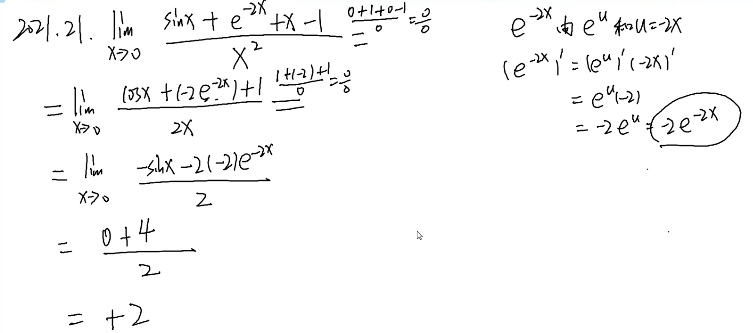 2021.21. lim x→0 (sinx + e^-2x + x - 1)/x² = (0+1+0-1)/0 = 0/0
= lim x→0 (cosx + (-2e^-2x) + 1)/2x = (1+(-2)+1)/0 = 0/0
= lim x→0 (-sinx - 2(-2)e^-2x)/2
= (0+4)/2
= +2
e^-2x 由 e^u 和 u=-2x
(e^-2x)' = (e^u)'(-2x)'
= e^u(-2)
= -2e^u = -2e^-2x